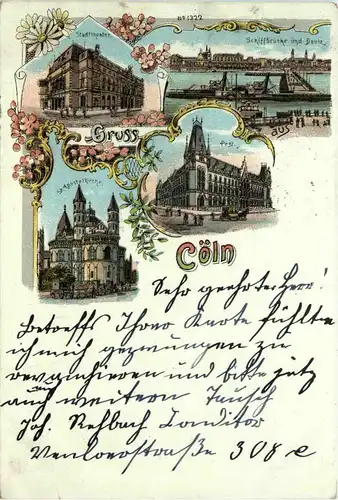 No 1322
Stadttheater.
Schiffbrücke und Deutz.
Gruss
aus
Post.
St. Apostelkirche.
Cöln
Sehr geehrter Herr!
Betreffs Ihrer Karte fühlte
ich mich gezwungen zu
revanchieren und bitte jetz
auch weitern Tausch
Joh. Rehbach Conditor
Venloerstraße 308 e